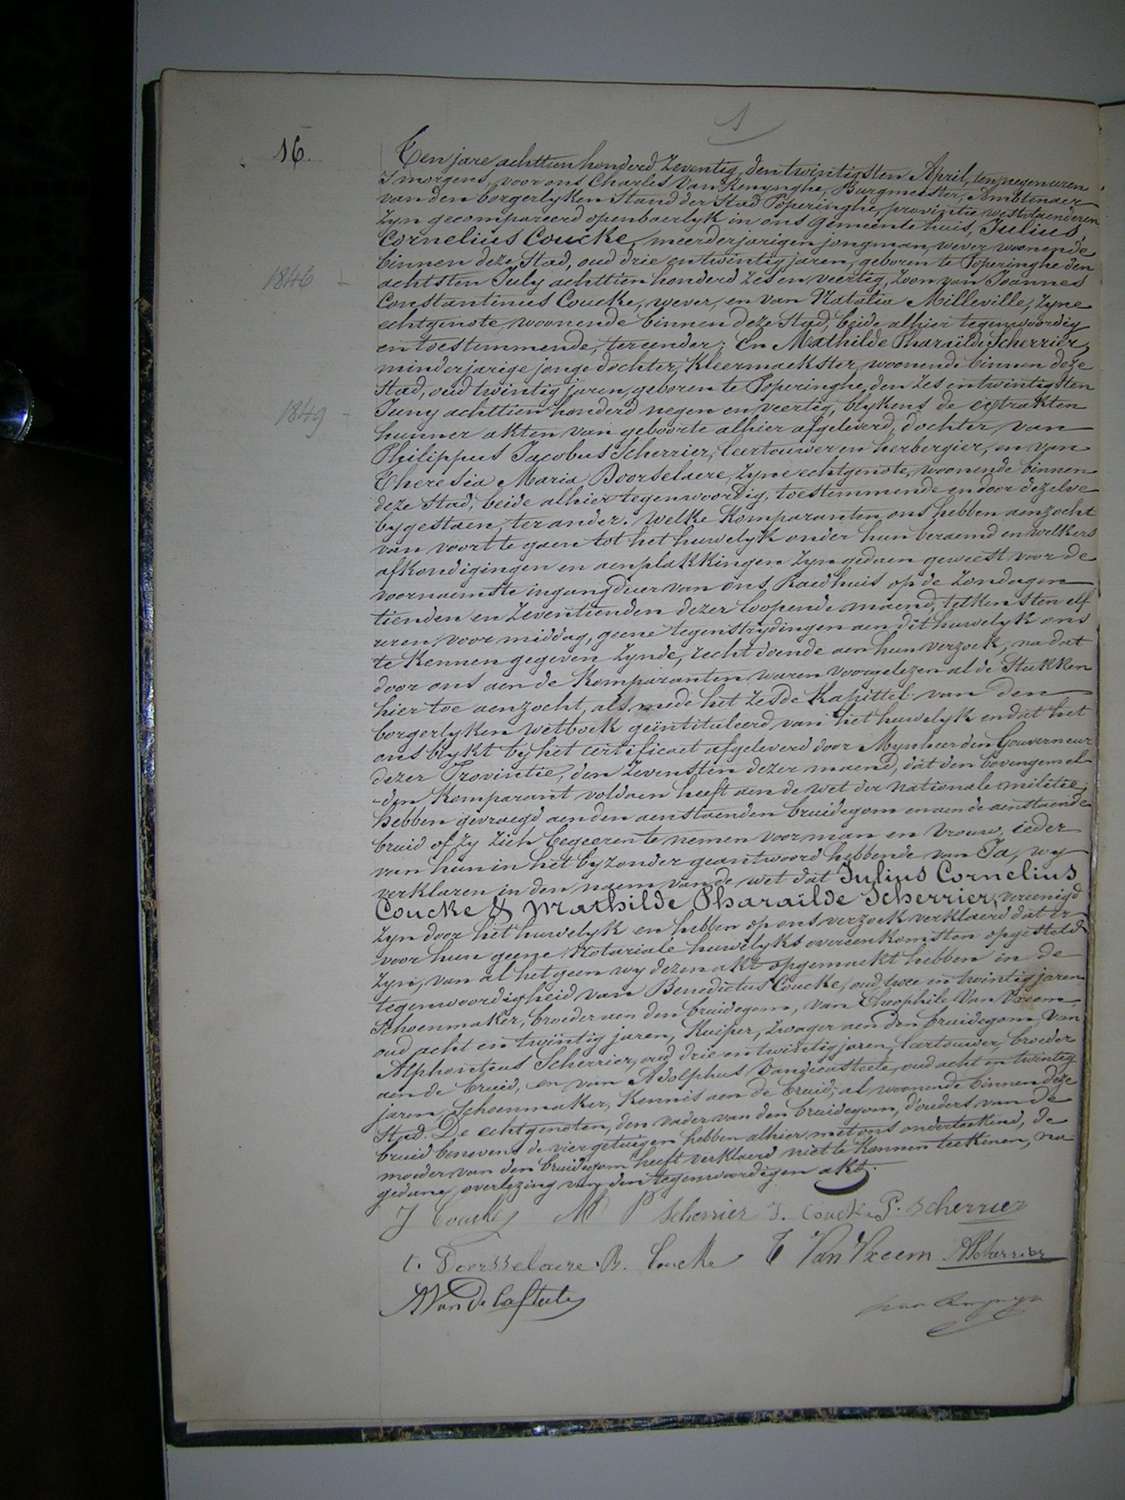 1
16.
Ten jare achttien honderd Zeventig, den twintigsten April, ten negen uren
's morgens, voor ons Charles Van Renynghe, Burgmeester, Ambtenaer
van den borgerlyken Stand der Stad Poperinghe, provintie westvlaenderen
Zyn gecompareerd openbaerlyk in ons gemeente huis, Julius
Cornelius Coucke, meerderjarigen jongman, wever woonende
binnen deze Stad, oud drie en twintig jaren, geboren te Poperinghe den
1846 -
achtsten July achttien honderd Zes en veertig, Zoon van Joannes
Constantinus Coucke, wever, en van Natalia Milleville, Zyne
echtgenote, woonende binnen deze Stad, beide alhier tegenwoordig
en toestemmende, ter eender; En Mathilde Pharaïlde Scherrier,
minderjarige jonge dochter, Kleermaekster, woonende binnen deze
Stad, oud twintig jaren, geboren te Poperinghe, den Zes en twintigsten
1849 -
Juny achttien honderd negen en veertig, blykens de extrakten
hunner akten van geboorte alhier afgeleverd, dochter van
Philippus Jacobus Scherrier, leertouwer en herbergier, en van
Theresia Maria Doorselaere, Zyne echtgenote, woonende binnen
deze Stad, beide alhier tegenwoordig, toestemmende en door dezelve
bygestaen, ter ander. Welke Komparanten ons hebben aenzocht
van voort te gaen tot het huwelyk onder hun beraemd en welkers
afkondigingen en aenplakkingen Zyn gedaen geweest voor de
voornaemste ingangdeur van ons Raedhuis op de Zondagen
tienden en Zeventienden dezer loopende maend, telkens ten elf
uren voor middag, geene tegenstrydingen aen dit huwelyk ons
te Kennen gegeven Zynde, recht doende aen hun verzoek, na dat
door ons aen de Komparanten waren voorgelezen al de Stukken
hier toe aenzocht, als mede het Zesde Kapittel van den
borgerlyken wetboek geïntituleerd van het huwelyk en dat het
ons blykt by het certificaet afgeleverd door Mynheer den Gouverneur
dezer Provintie, den Zevensten dezer maend, dat den bovengemel-
den Komparant voldaen heeft aen de wet der nationale militie;
hebben gevraegd aen den aenstaenden bruidegom en aen de aenstaende
bruid of Zy Zich begeeren te nemen voor man en vrouw, ieder
van hun in het byzonder geantwoord hebbende van Ja, wy
verklaren in den naem van de wet dat Julius Cornelius
Coucke & Mathilde Pharaïlde Scherrier, vereenigd
Zyn door het huwelyk en hebben op ons verzoek verklaerd dat er
voor hun geene Notariale huwelyks overeenkomsten opgesteld
Zyn, van al het geen wy dezen akt opgemaekt hebben in de
tegenwoordigheid van Benedictus Coucke, oud twee en twintig jaren
Schoenmaker, broeder aen den bruidegom, van Theophile Van Vreem
oud acht en twintig jaren, Kuiper, Zwager aen den bruidegom, van
Alphonsus Scherrier, oud drie en twintig jaren, leertouwer, broeder
aen de bruid, en van Adolphus Vandecasteele, oud acht en twintig
jaren, Schoenmaker, Kennis aen de bruid; al woonende binnen deze
Stad. De echtgenoten, den vader van den bruidegom, d'ouders van de
bruid benevens de vier getuigen hebben alhier met ons onderteekend, de
moeder van den bruidegom heeft verklaerd niet te Konnen teekenen, na
gedane overlezing van den tegenwoordigen akt.
J Coucke M P Scherrier J. Coucke P. Scherrier
t. Doorsselaere B. Coucke T Van Vreem A Scherrier